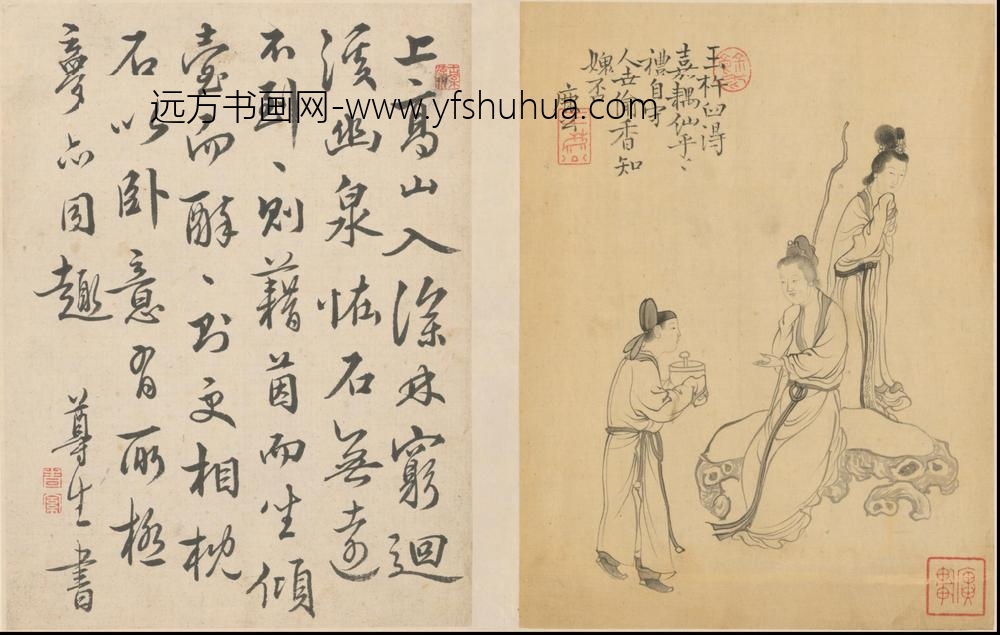 玉杵臼得
嘉耦仙乎〻
禮自守
人世偷香知
媿否
上〻高山入深林窮迴
溪幽泉怪石無遠
不到〻則藉茵而坐傾
壺而醉〻則更相枕
石以卧意有所極
夢亦同趣
尊生書
远方书画网-www.yfshuhua.com